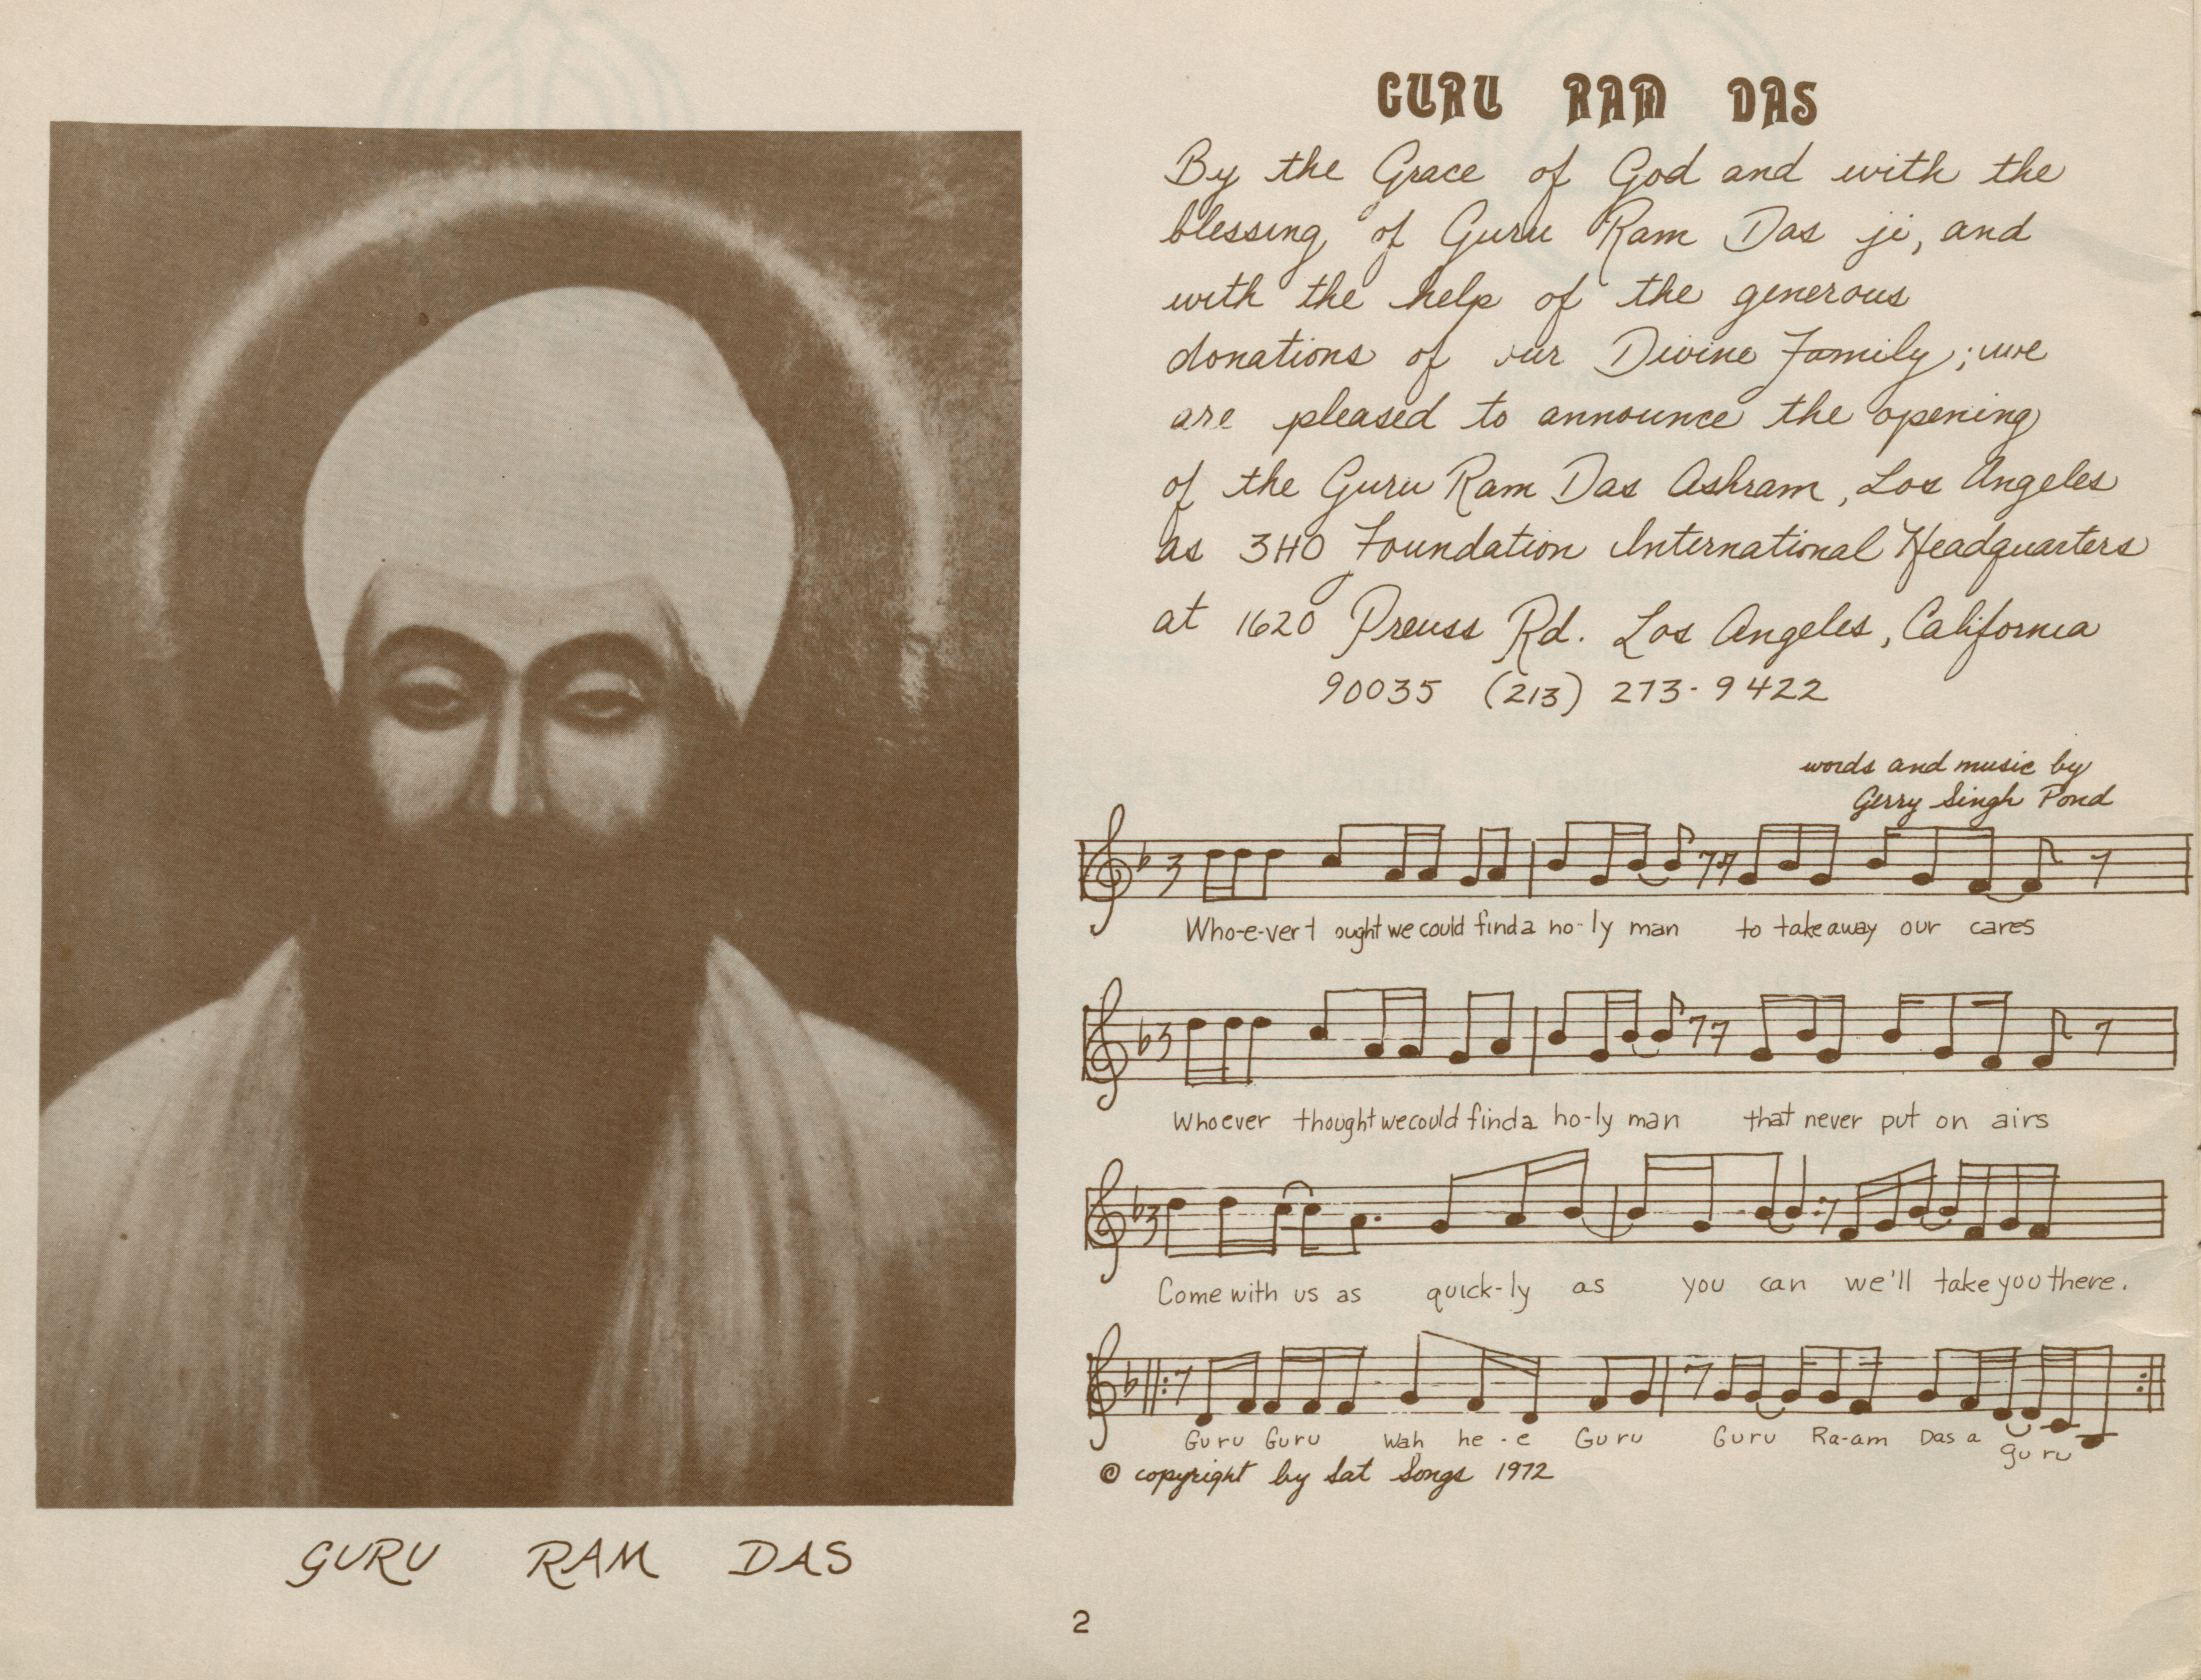 GURU RAM DAS
By the Grace of God and with the
blessing of Guru Ram Das ji, and
with the help of the generous
donations of our Divine Family; we
are pleased to announce the opening
of the Guru Ram Das Ashram, Los Angeles
as 3HO Foundation International Headquarters
at 1620 Preuss Rd. Los Angeles, California
90035 (213) 273-9422
words and music by
Gerry Singh Pond
3
Who-e-ver t ought we could find a ho-ly man to take away our cares
3
Whoever thought we could find a ho-ly man that never put on airs
3
Come with us as quick-ly as you can we'll take you there.
Guru Guru Wah he-e Guru Guru Ra-am Das a guru
© copyright by Sat Songs 1972
GURU RAM DAS
2